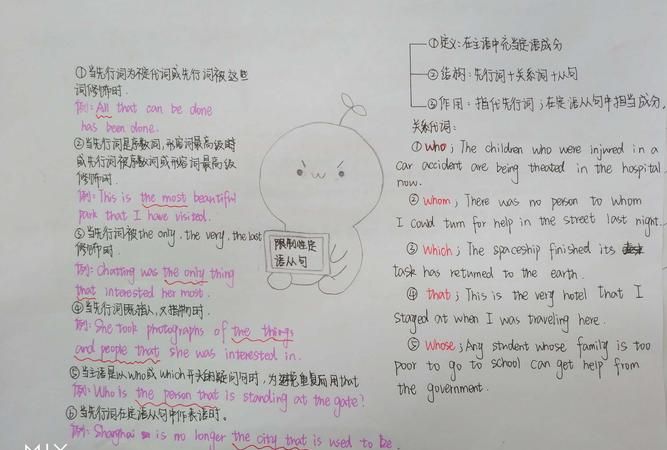 ①当先行词为不定代词或先行词被这些
词修饰时.
例: All that can be done
has been done.
②当先行词是序数词,形容词最高级时
或先行词被序数词或形容词最高级
修饰时.
例: This is the most beautiful
park that I have visited.
③当先行词被the only, the very, the last
修饰时.
例: Chatting was the only thing
that interested her most.
④当先行词既指人,又指物时.
例: She took photographs of the things
and people that she was interested in.
⑤当主语是以who或which开头的疑问句时,为避免重复而用that
例: Who is the person that is standing at the gate?
⑥当先行词在定语从句中作表语时。
例: Shanghai is no longer the city that is used to be.
限制性定
语从句
①定义:在主语中充当定语成分
②结构:先行词+关系词+从句
③作用:指代先行词;在定语从句中担当成分.
关系代词:
①who; The children who were injured in a
car accident are being theated in the hospital
now.
②whom; There was no person to whom
I could turn for help in the street last night.
③which; The spaceship finished its
task has returned to the earth.
④that; This is the very hotel that I
stayed at when I was traveling here.
⑤whose; Any student whose family is too
poor to go to school can get help from
the government.